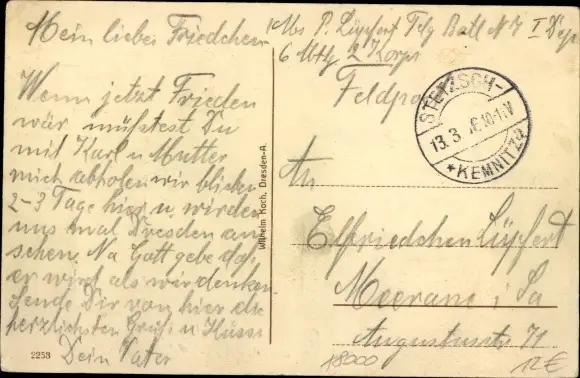 Mein liebes Friedchen
Wenn jetzt Frieden
wär müßtest Du
mit Karl u Mutter
mich abholen wir blieben
2-3 Tage hier u. würden
uns mal Dresden an
sehen. Na Gott gebe daß
er wird als wir denken
sende Dir von hier die
herzlichsten Grüße u Küsse
Dein Vater
2253
Wilhelm Hoch, Dresden-A.
Abs P. Lüpfert Telg Batl N 7 I
6 2 Korps
Feldpost
STETZSCH-
13.3 16.10-11.V
* KEMNITZ a
An
Elfriedchen Lüpfert
Meerane i Sa
Augustusstr 71
18000
12€